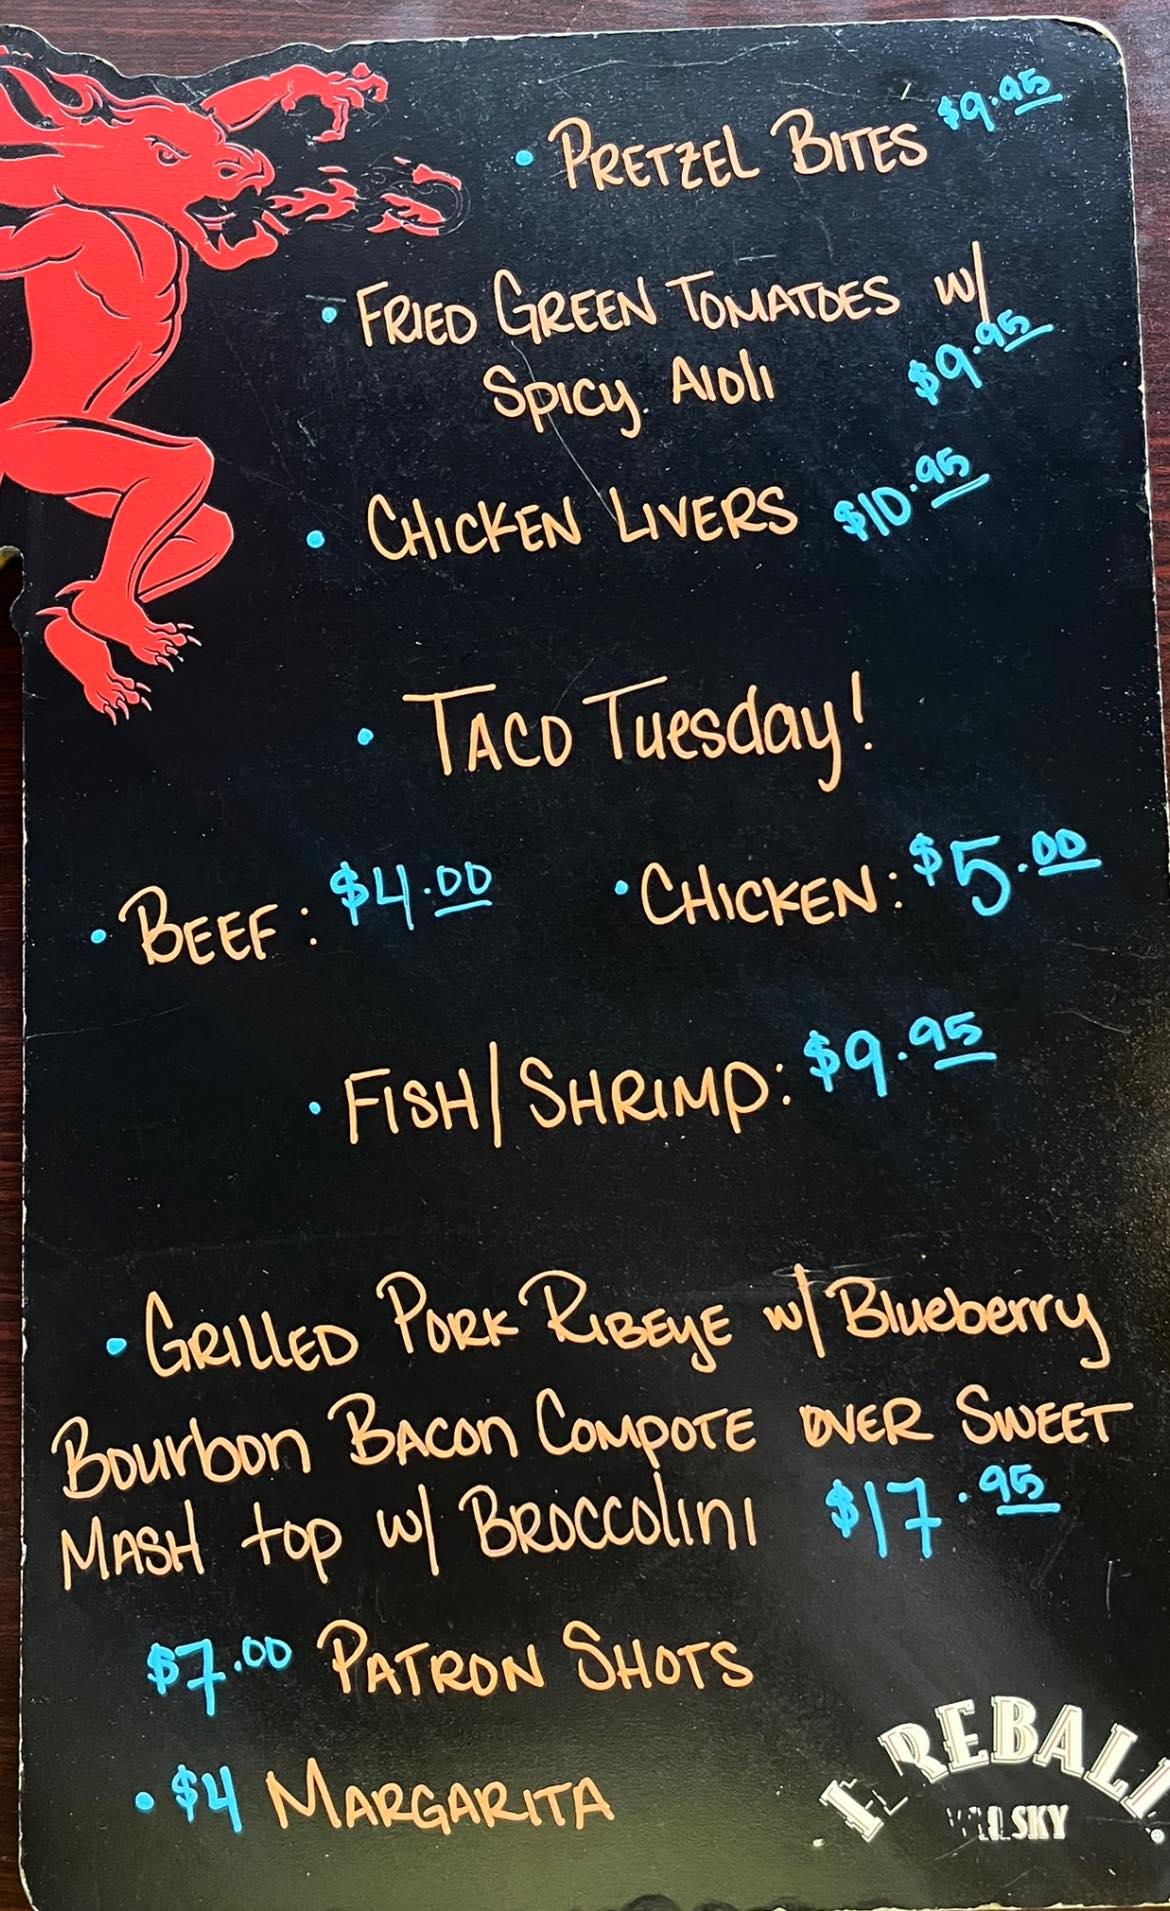 • PRETZEL BITES $9.95
• FRIED GREEN TOMATOES w/
SPICY AIOLI $9.95
• CHICKEN LIVERS $10.95
• TACO Tuesday!
• BEEF: $4.00 • CHICKEN: $5.00
• FISH/SHRIMP: $9.95
• GRILLED PORK RIBEYE w/ Blueberry
Bourbon BACON COMPOTE OVER SWEET
MASH top w/ BROCCOLINI $17.95
$7.00 PATRON SHOTS
• $4 MARGARITA
FIREBALL
WHISKY